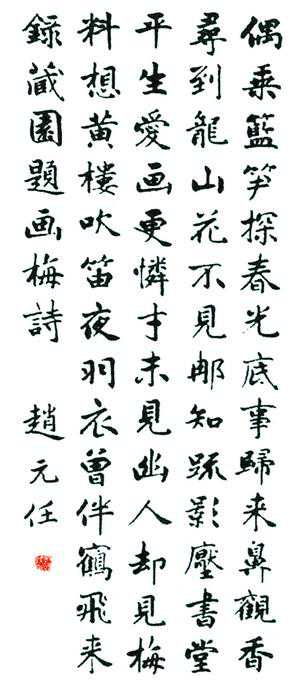 偶乗籃笋探春光底事歸来鼻觀香
尋到龍山花不見那知疎影壓書堂
平生愛画更憐才未見幽人却見梅
料想黄樓吹笛夜羽衣曾伴鶴飛来
錄藏園題画梅詩 趙元任